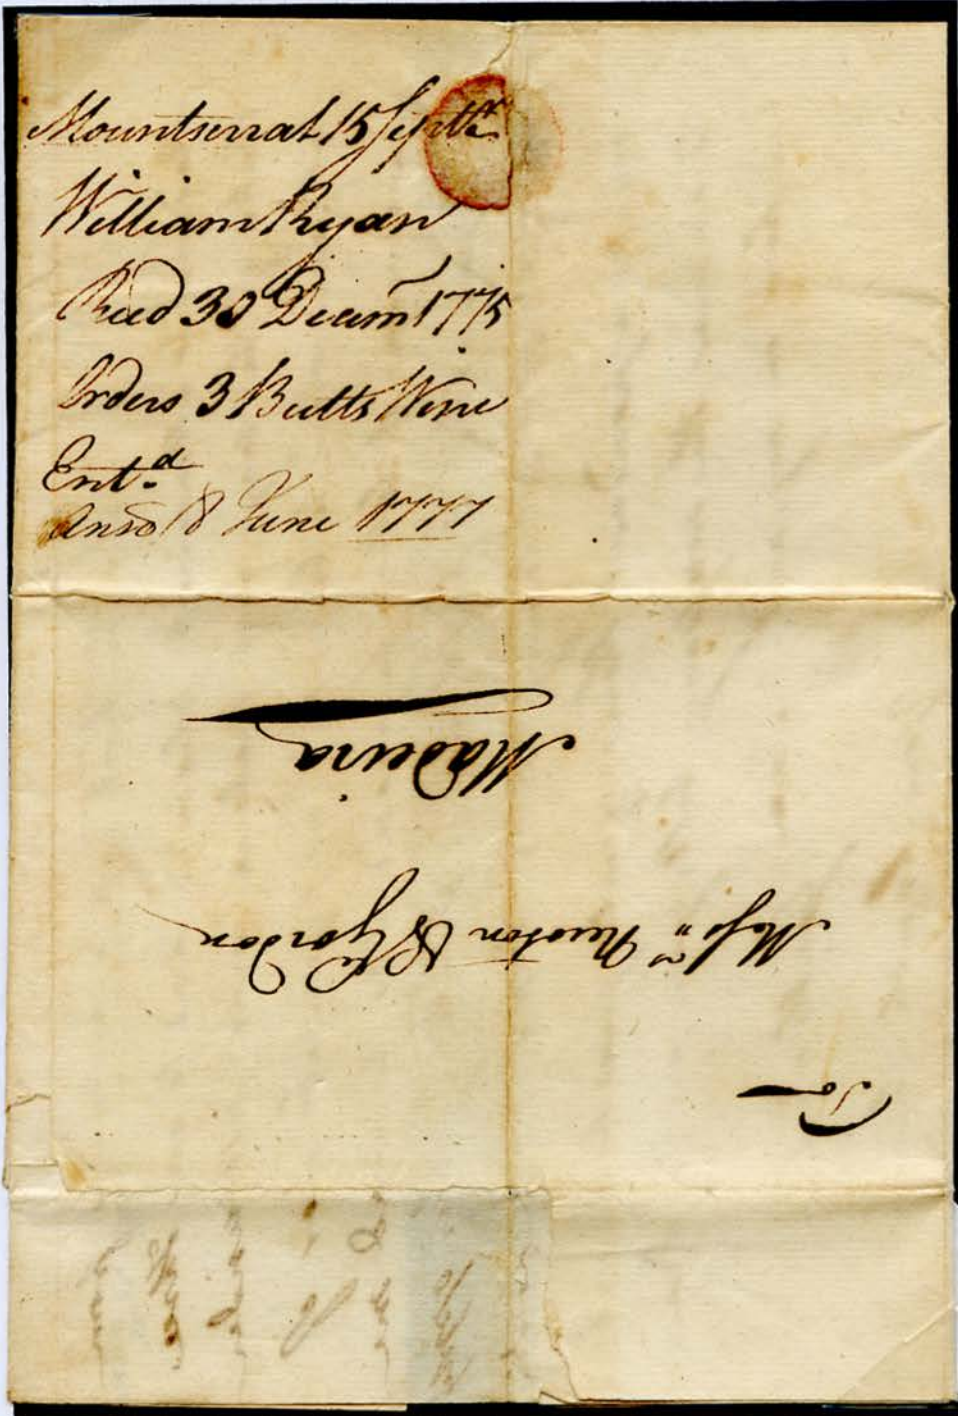 Mountserrat 15 Septr.
William Ryan
Recd 30 Decemr 1775
Orders 3 Butts Wine
Entd.
Ansd 8 June 1777
To
Messrs Newton & Gordon
Madeira